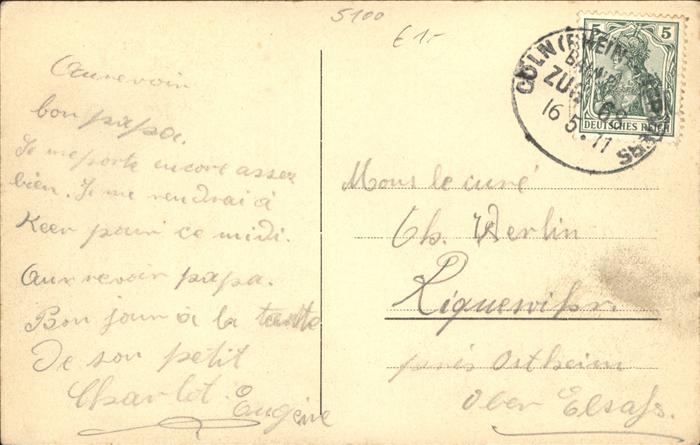 5100
€ 1-
5 5
DEUTSCHES REICH
CÖLN (RHEIN) VERVIERS
BAHNP.
ZUG 68
16 5 11
Aurevoir
bon papa.
Je me porte encore assez
bien. Je me rendrai à
Keer pour ce midi.
Aurrevoir papa.
Bon jour à la tante
De son petit
Charlot. Eugène
Mons le curé
Ch. Werlin
Riquewihr.
près Ostheim
Ober Elsaß.